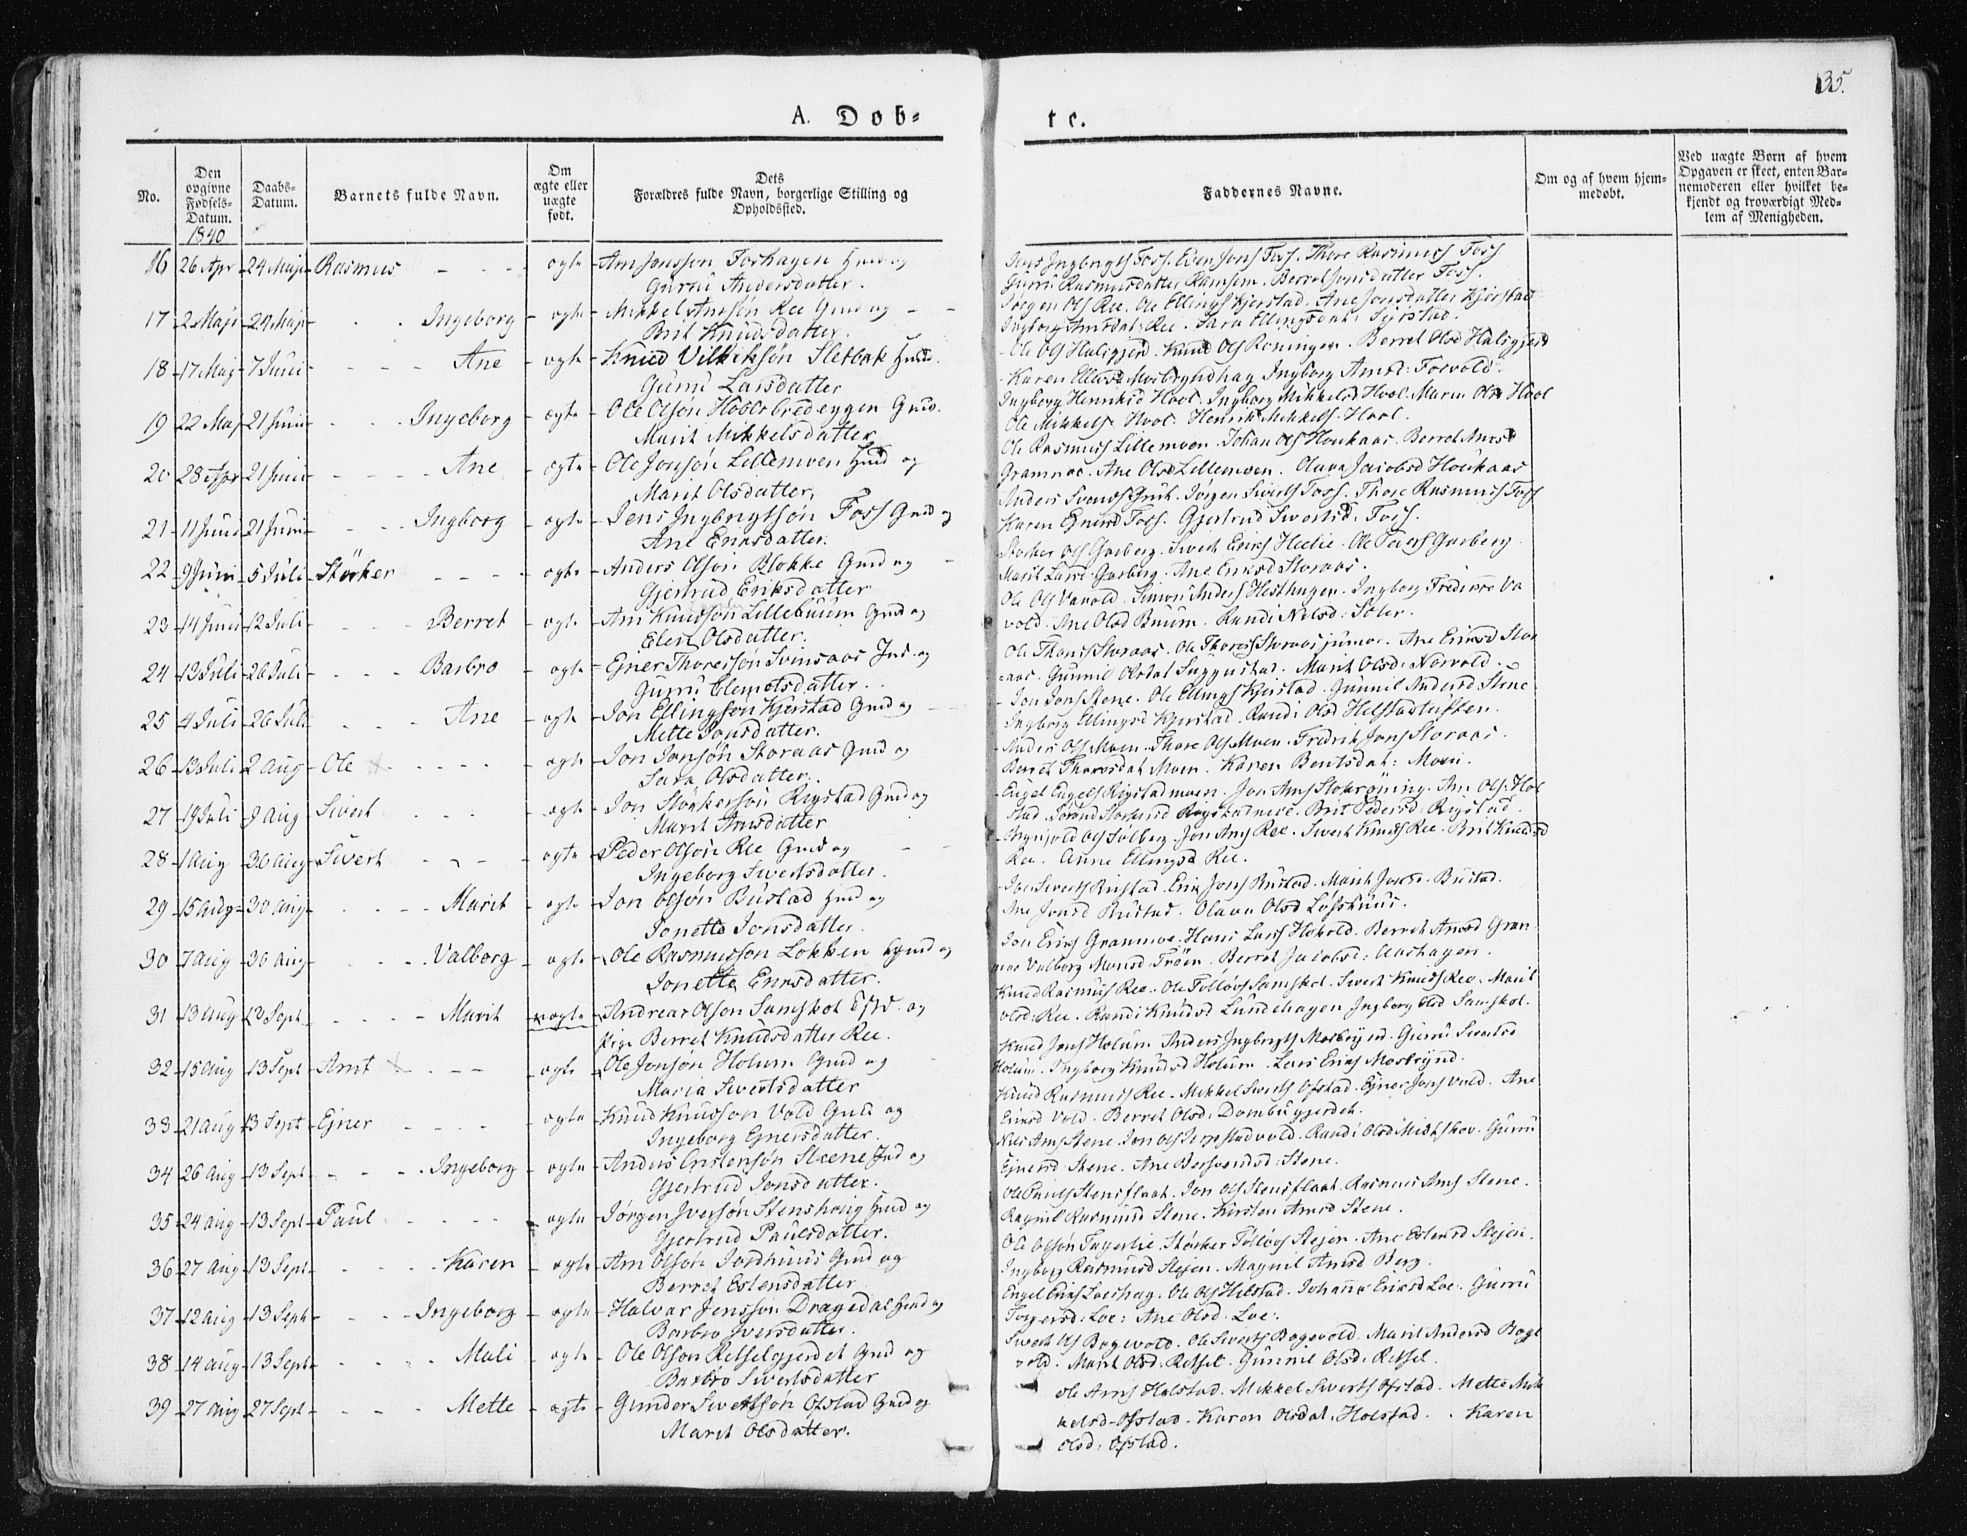 35.
A. Døb-
te.
No.
Den
opgivne
Fødsels-
Datum.
1840
Daabs-
Datum.
Barnets fulde Navn.
Om
ægte eller
uægte
født.
Dets
Forældres fulde Navn, borgerlige Stilling og
Opholdssted.
Faddernes Navne.
Om og af hvem hjem-
medøbt.
Ved uægte Børn af hvem
Opgaven er skeet, enten Bar-
nemoderen eller hvilket be-
kjendt og troværdigt Med-
lem af Menigheden.
16 26 Apr 24 Maji Rasmus ægte Arn Jonsson Foshagen Huusd og
Gurru Andersdatter.
Jens Ingbrigts Foss. Even Jons Foss. Thore Rasmuss Foss
Gurru Rasmusdatter Ramsem. Berret Jonsdatter Foss.
17 2 Maji 24 Maji Ingeborg ægte Mikkel Arnsøn Ree Gmd og
Brit Knudsdatter.
Jørgen Ols Ree. Ole Ellings Kjerstad. Ane Jonsdatter Kjerstad
Ingborg Arnsdat: Ree. Sara Ellingsdat:
18 17 Maj 7 Juni Ane ægte Knud Sletbak Huusd.
Gurru Larsdatter
Ole Ols Haligjerd. Knud Ols Roningen. Berret Olsd Haligjerd
Karen Ingborg Arnsd: Forvold.
19 22 Maj 21 Juni Ingeborg ægte Ole Olsøn Gmd.
Marit Mikkelsdatter
Ingborg Henriksd Hool. Ingborg Mikkelsd Hool. Maren Olsd Hool
Ole Mikkels Hool. Henrik Mikkels. Hool.
20 28 Apr 21 Juni Ane ægte Ole Jonsøn Lillemoen Huusd og
Marit Olsdatter
Ole Rasmuss Lillemoen. Johan Ols Houkaas. Berret Arnsd
Grammoe. Ane Olsd Lillemoen. Olava Jacobsd Houkaas
21 11 Juni 21 Juni Ingborg ægte Jens Ingbrigtsøn Foss Gmd og
Ane Eriksdatter.
Anders Svends Grut. Jørgen Siverts Foss. Thore Rasmuss Foss
Karen Ejnersd Foss. Gjertrud Sivertsd. Foss.
22 9 Juni 5 Juli Størker ægte Anders Olsøn Blokke Gmd og
Gjertrud Eriksdatter
Størker Ols Garberg. Sivert Eriks Heelie. Ole Peders Garberg
Marit Larsd. Garberg. Ane Eriksd Storaas.
23 14 Juni 12 Juli Berret ægte Arn Knudsøn Lillebuum Gmd og
Elen Olsdatter.
Ole Ols Vavold. Simon Anders Hesthagen. Ingborg Fredriks Va
vold. Ane Olsd Buum. Randi Nilsd. Soler.
24 13 Juli 26 Juli Barbro ægte Ejner Thoressøn Svinsaas Ind. og
Gurru Clemetsdatter.
Ole Thoress Storaas. Ole Thoress Storaas junior. Ane Eriksd Stor
aas. Gunnil Marit Olsd. Norvold.
25 4 Juli 26 Juli Ane ægte Jon Ellingsøn Kjerstad Gmd og
Mette Jonsdatter.
Jon Jons Stene. Ole Ellings Kjerstad. Gunnil Andersd Stene
Ingborg Ellingsd Kjerstad. Randi Olsd Helstadtuften.
26 13 Juli 2 Aug Ole ægte Jon Jonsøn Storaas Gmd og
Sara Olsdatter.
Anders Ols Moen. Thore Ols Moen. Fredrik Jons Storaas.
Berret Thoresdat Moen. Karen Bentsdat: Moen.
27 19 Juli 9 Aug Sivert ægte Jon Størkersøn Rigstad Gmd og
Marit Arnsdatter
Engel Engels Rigstadmoen. Jon Arns Stokrøning. Arn Ols: Hol
stad. Brit Pedersd. Rigstad.
28 1 Aug 30 Aug Sivert ægte Peder Olsøn Ree Gmd og
Ingeborg Sivertsdatter.
Ols Solberg. Jon Arns Ree. Sivert Knuds Ree. Brit Knudsd
Ree. Anne Ellingsd Ree.
29 15 Aug 30 Aug Marit ægte Jon Olsøn Bustad Huusd og
Jonette Jonsdatter.
Joe Siverts Bustad. Erik Jons Bustad. Marit Jonsd. Bustad.
Ane Jonsd Bustad. Olava Olsd
30 7 Aug 30 Aug Valborg ægte Ole Rasmussøn Løkken Huusd og
Jonette Eriksdatter.
Jon Eriks Grammoe. Hans Lars Hokold. Berret Arnsd Gran
moe Valborg Monsd Trøen. Berret Jacobsd: Aashagen.
31 13 Aug 13 Sept Marit uægte Andreas Olsøn Samskot og
Pige Berret Knudsdatter Ree.
Knud Rasmuss Ree. Ole Samskot. Sivert Knuds Ree. Marit
Olsd: Ree. Randi Knudsd Lundehagen Ingborg Olsd Samskot.
32 15 Aug 13 Sept Arnt ægte Ole Jonsøn Holum Gmd og
Maria Sivertsdatter
Knud Jons Holum Anders Ingbrigts Mosbrynd. Gurru Sivertsd
Holum. Ingborg Knudsd Holum. Lars Eriks Mosbrynd.
33 21 Aug 13 Sept Ejner ægte Knud Knudsøn Vold Gmd og
Ingeborg Ejnersdatter.
Knud Rasmuss Ree. Mikkel Siverts Ofstad. Ejner Jons Vold. Ane
Ejnersd Vold. Berret Olsd:
34 26 Aug 13 Sept Ingeborg ægte Anders Steene Ind og
Gjertrud Jonsdatter.
Nils Arns Stene. Jon Ols Randi Olsd Midtskov. Gurru
Ejnersd Stene. Ane Stene.
35 24 Aug 13 Sept Paul ægte Jørgen Iversøn Stenshoug Huusd og
Gjertrud Paulsdatter.
Ole Pauls Stensflaat. Jon Ols Stensflaat. Rasmus Arns Stene.
Ragnil Rasmusd Stene. Kirsten Arnsd Stene.
36 27 Aug 13 Sept Karen ægte Arn Olsøn Jordhuus Gmd og
Berret Estensdatter
Ole Olsøn Fagerlie. Størker Tølløvs Stejen. Ane Estensd Stejen.
Ingborg Rasmusd Stejen. Magnil Arnsd Berg.
37 12 Aug 13 Sept Ingeborg ægte Halvar Jenssøn Dragedal Huusd og
Barbro Iversdatter.
Engel Eriks Loeshag. Ole Ols Helstad. Johanna Eriksd Loe. Gurru
Torgersd. Loe. Ane Olsd. Loe.
38 14 Aug 13 Sept Mali ægte Ole Olsøn Retselgjerdet Gmd og
Barbro Sivertsdatter
Sivert Ols Bogevold. Ole Siverts Bogevold. Marit Andersd Boge
vold. Marit Olsd. Retsel. Gunnil Olsd. Retsel.
39 27 Aug 27 Sept Mette ægte Gunder Sivertsøn Ofstad Gmd og
Marit Olsdatter.
Ole Arns Holstad. Mikkel Siverts Ofstad. Mette Mik
kelsd Ofstad. Karen Olsdat. Holstad. Karen
Olsd. Ofstad.